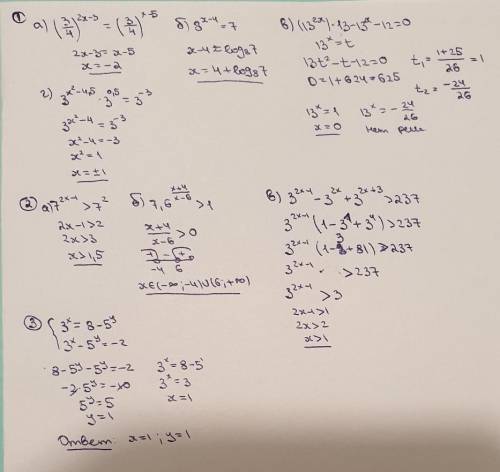 ① а) (3/4)^(2x-3) = (3/4)^(x-5)
2x-3 = x-5
x = -2
б) 8^(x-4) = 7
x-4 = log₈7
x = 4 + log₈7
в) (13^(2x))·13 - 13^x - 12 = 0
13^x = t
13t² - t - 12 = 0
D = 1 + 624 = 625
t₁ = (1+25)/26 = 1
t₂ = -24/26
13^x = 1   13^x = -24/26
x = 0   нет реш
г) 3^(x²-4,5) · 3^(0,5) = 3^(-3)
3^(x²-4) = 3^(-3)
x² - 4 = -3
x² = 1
x = ±1
② а) 7^(2x-1) > 7²
2x-1 > 2
2x > 3
x > 1,5
б) 7,6^((x+4)/(x-6)) > 1
(x+4)/(x-6) > 0
+ - +
-4 6
x∈(-∞; -4)∪(6; +∞)
в) 3^(2x-1) - 3^(2x) + 3^(2x+3) > 237
3^(2x-1) (1 - 3^1 + 3^4) > 237
3^(2x-1) (1 - 3 + 81) > 237
3^(2x-1) · > 237
3^(2x-1) > 3
2x-1 > 1
2x > 2
x > 1
③ { 3^x = 8 - 5^y
3^x - 5^y = -2
8 - 5^y - 5^y = -2
-2·5^y = -10
5^y = 5
y = 1
3^x = 8-5
3^x = 3
x = 1
Ответ: x = 1; y = 1